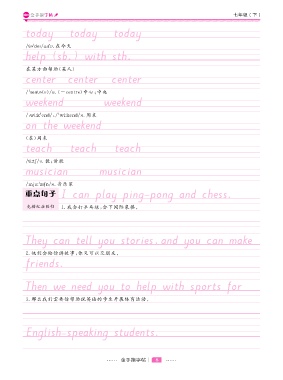 七年级(下)
today today today
/təˈdeɪ/adv.在今天
help (sb.) with sth.
在某方面帮助(某人)
center center center
/ˈsentə(r)/n.(=centre)中心;中央
weekend weekend
n.周末
on the weekend
(在)周末
teach teach teach
/tiːtʃ/v.教;讲授
musician musician
/mjuːˈzɪʃn/n.音乐家
重点句子
I can play ping-pong and chess.
1.我会打乒乓球、会下国际象棋。
They can tell you stories, and you can make
2.他们会给你讲故事,你又可以交朋友。
friends.
Then we need you to help with sports for
3.那么我们需要你帮助说英语的学生开展体育活动。
English-speaking students.